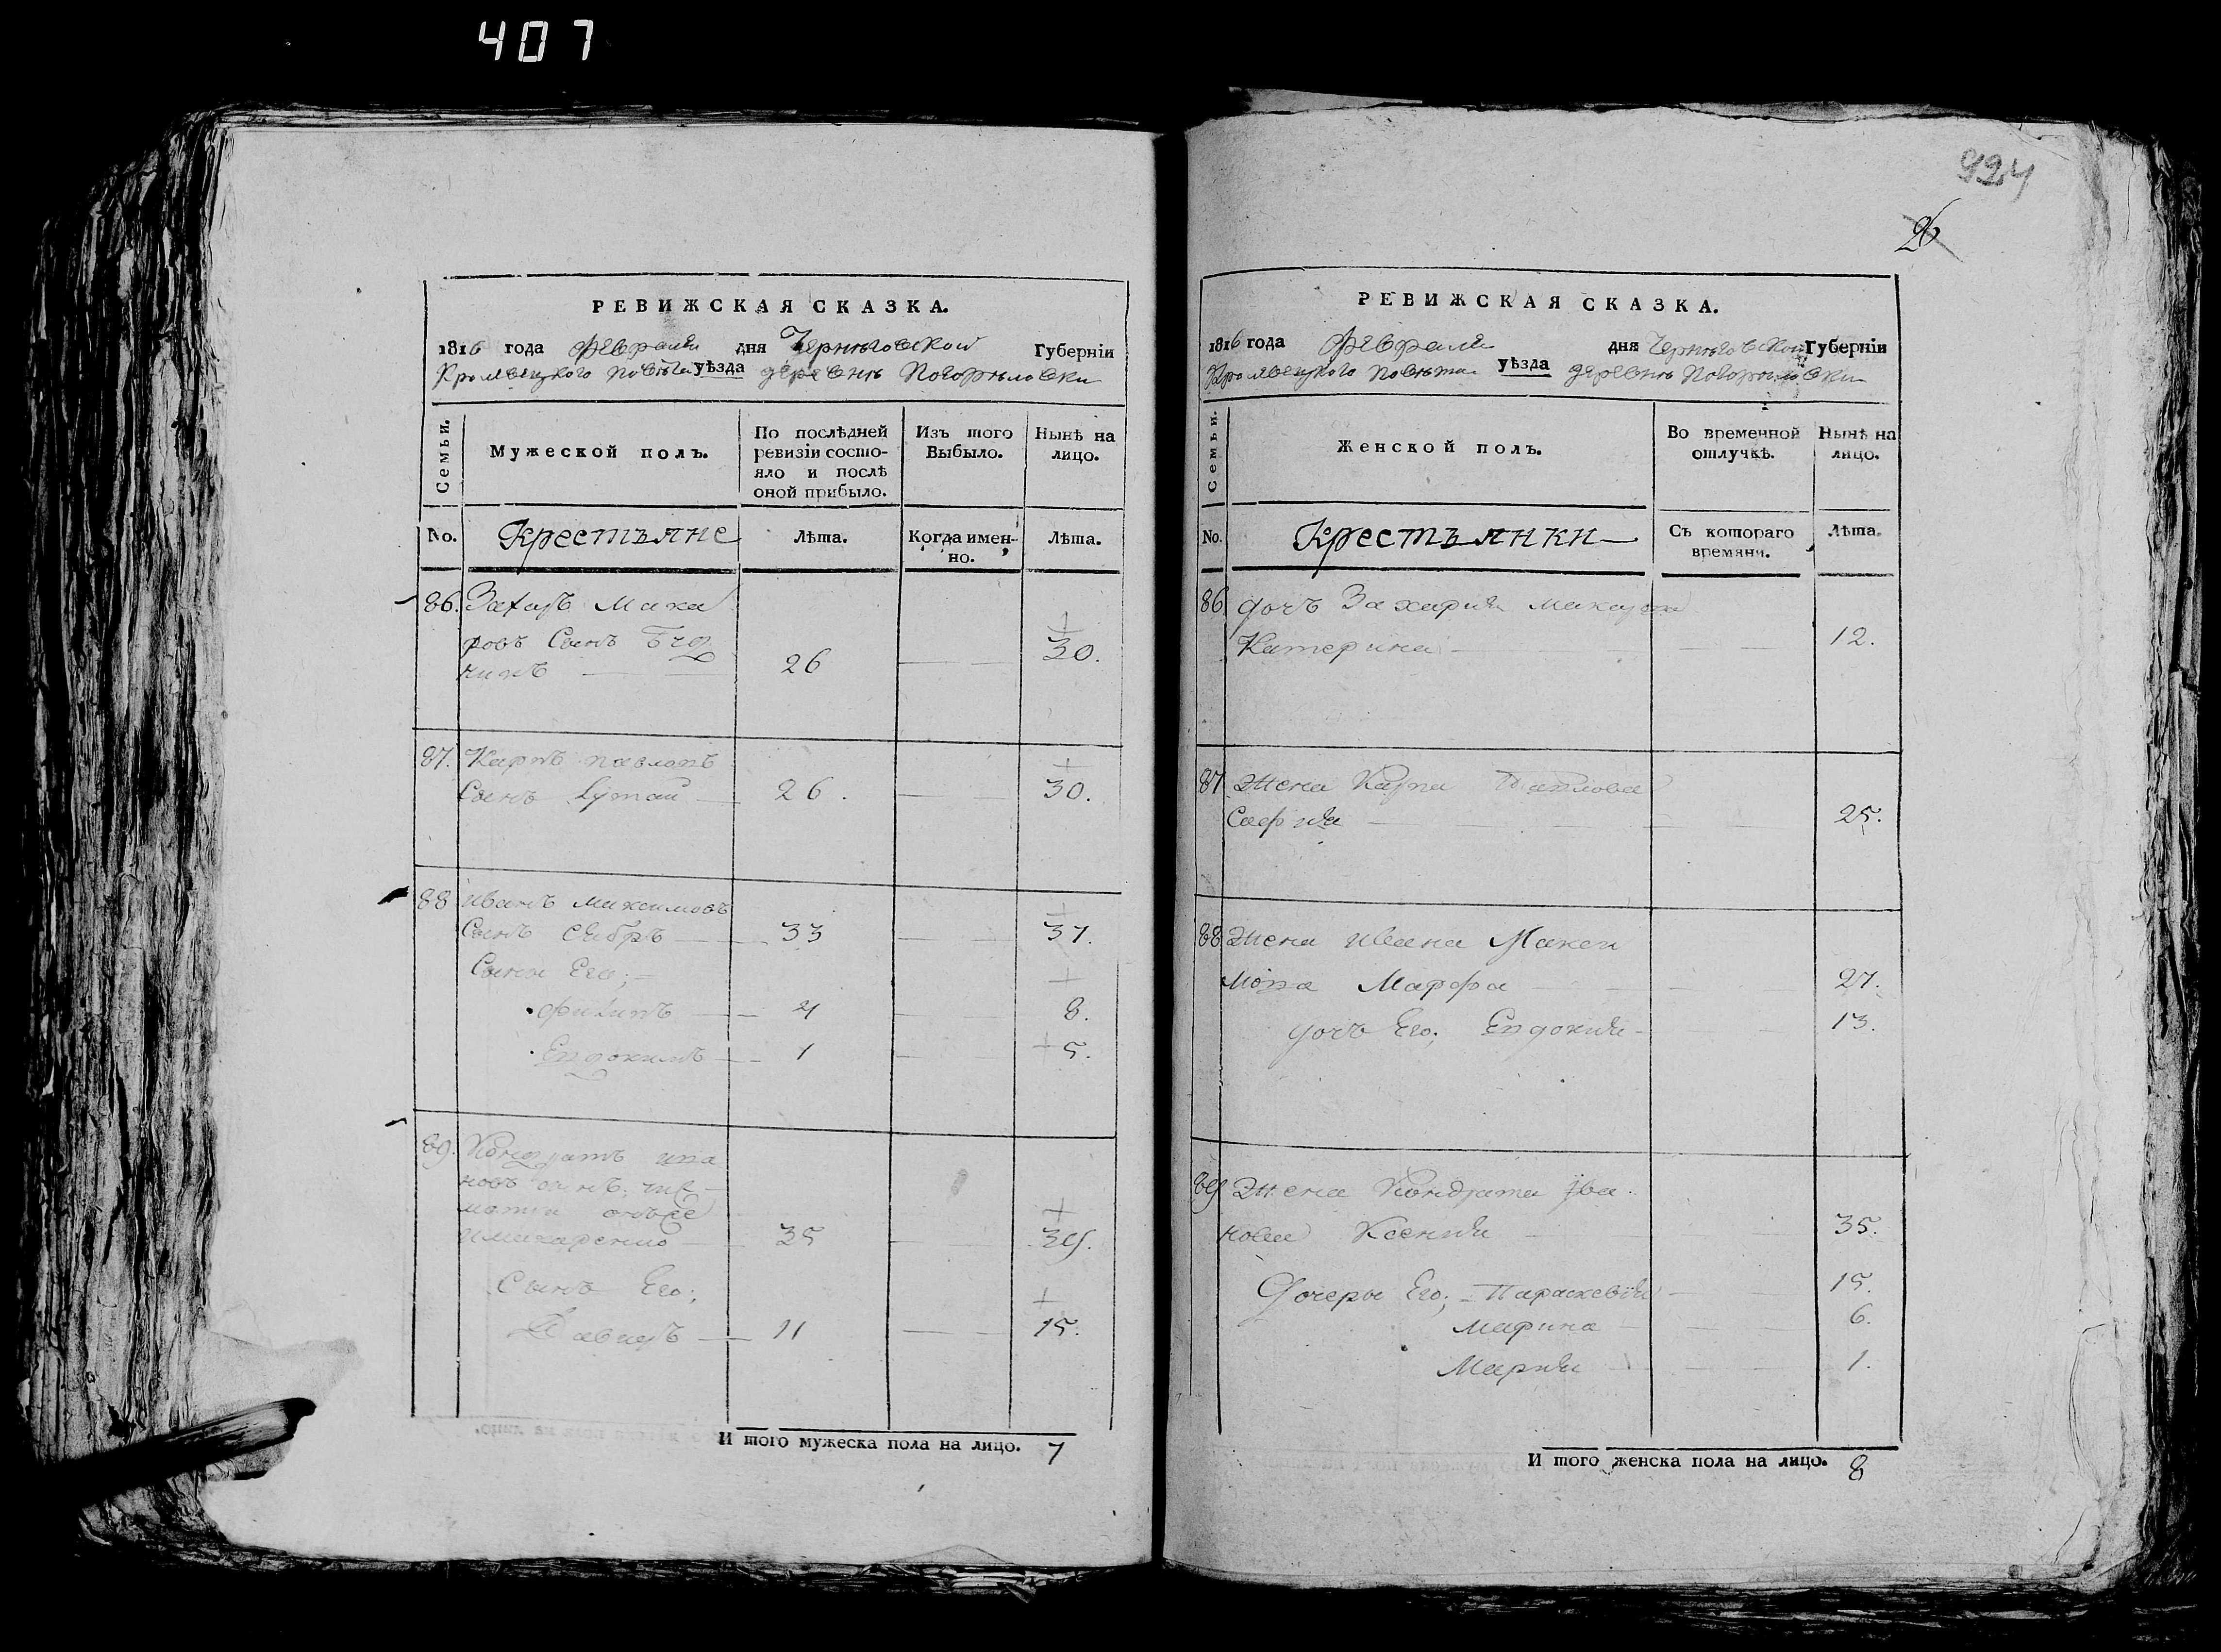 407
924
26
РЕВИЖСКАЯ СКАЗКА.
1816 года февраля дня Черниговской Губерніи
Кролевецкого повѣта уѣзда деревнѣ Погорѣловки
Семьи.
Мужеской полъ.
По послѣдней ревизіи состояло и послѣ оной прибыло.
Изъ того Выбыло.
Нынѣ на лицо.
No. Крестъяне Лѣта. Когда именно. Лѣта.
86. Захаръ Мака
ровъ Сынъ
26 30.
87. Карпъ павловъ
Сынъ 26. 30.
88 иванъ максимовъ
Сынъ 33 37.
Сыны Его;
филипъ 4 8.
Евдокимъ 1 5.
89. Кондратъ ива
новъ
35 39.
Сынъ Его;
Давидъ 11 15.
И того мужеска пола на лицо. 7
РЕВИЖСКАЯ СКАЗКА.
1816 года февраля дня Черниговской Губерніи
Кролевецкого повѣта уѣзда деревнѣ Погорѣловки
Семьи.
Женской полъ.
Во временной отлучкѣ.
Нынѣ на лицо.
No. Крестъянки Съ котораго времяни. Лѣта.
86 дочъ Захарія макарова
Катерина 12.
87 Жена Карпа Павлова
Софія 25.
88 Жена ивана Макси
мова Марфа 27.
дочъ Его; Евдокія 13.
89 Жена Кондрата Ива
нова Ксенія 35.
Дочеры Его; Параскевія 15.
Марина 6.
Марія 1.
И того женска пола на лицо. 8